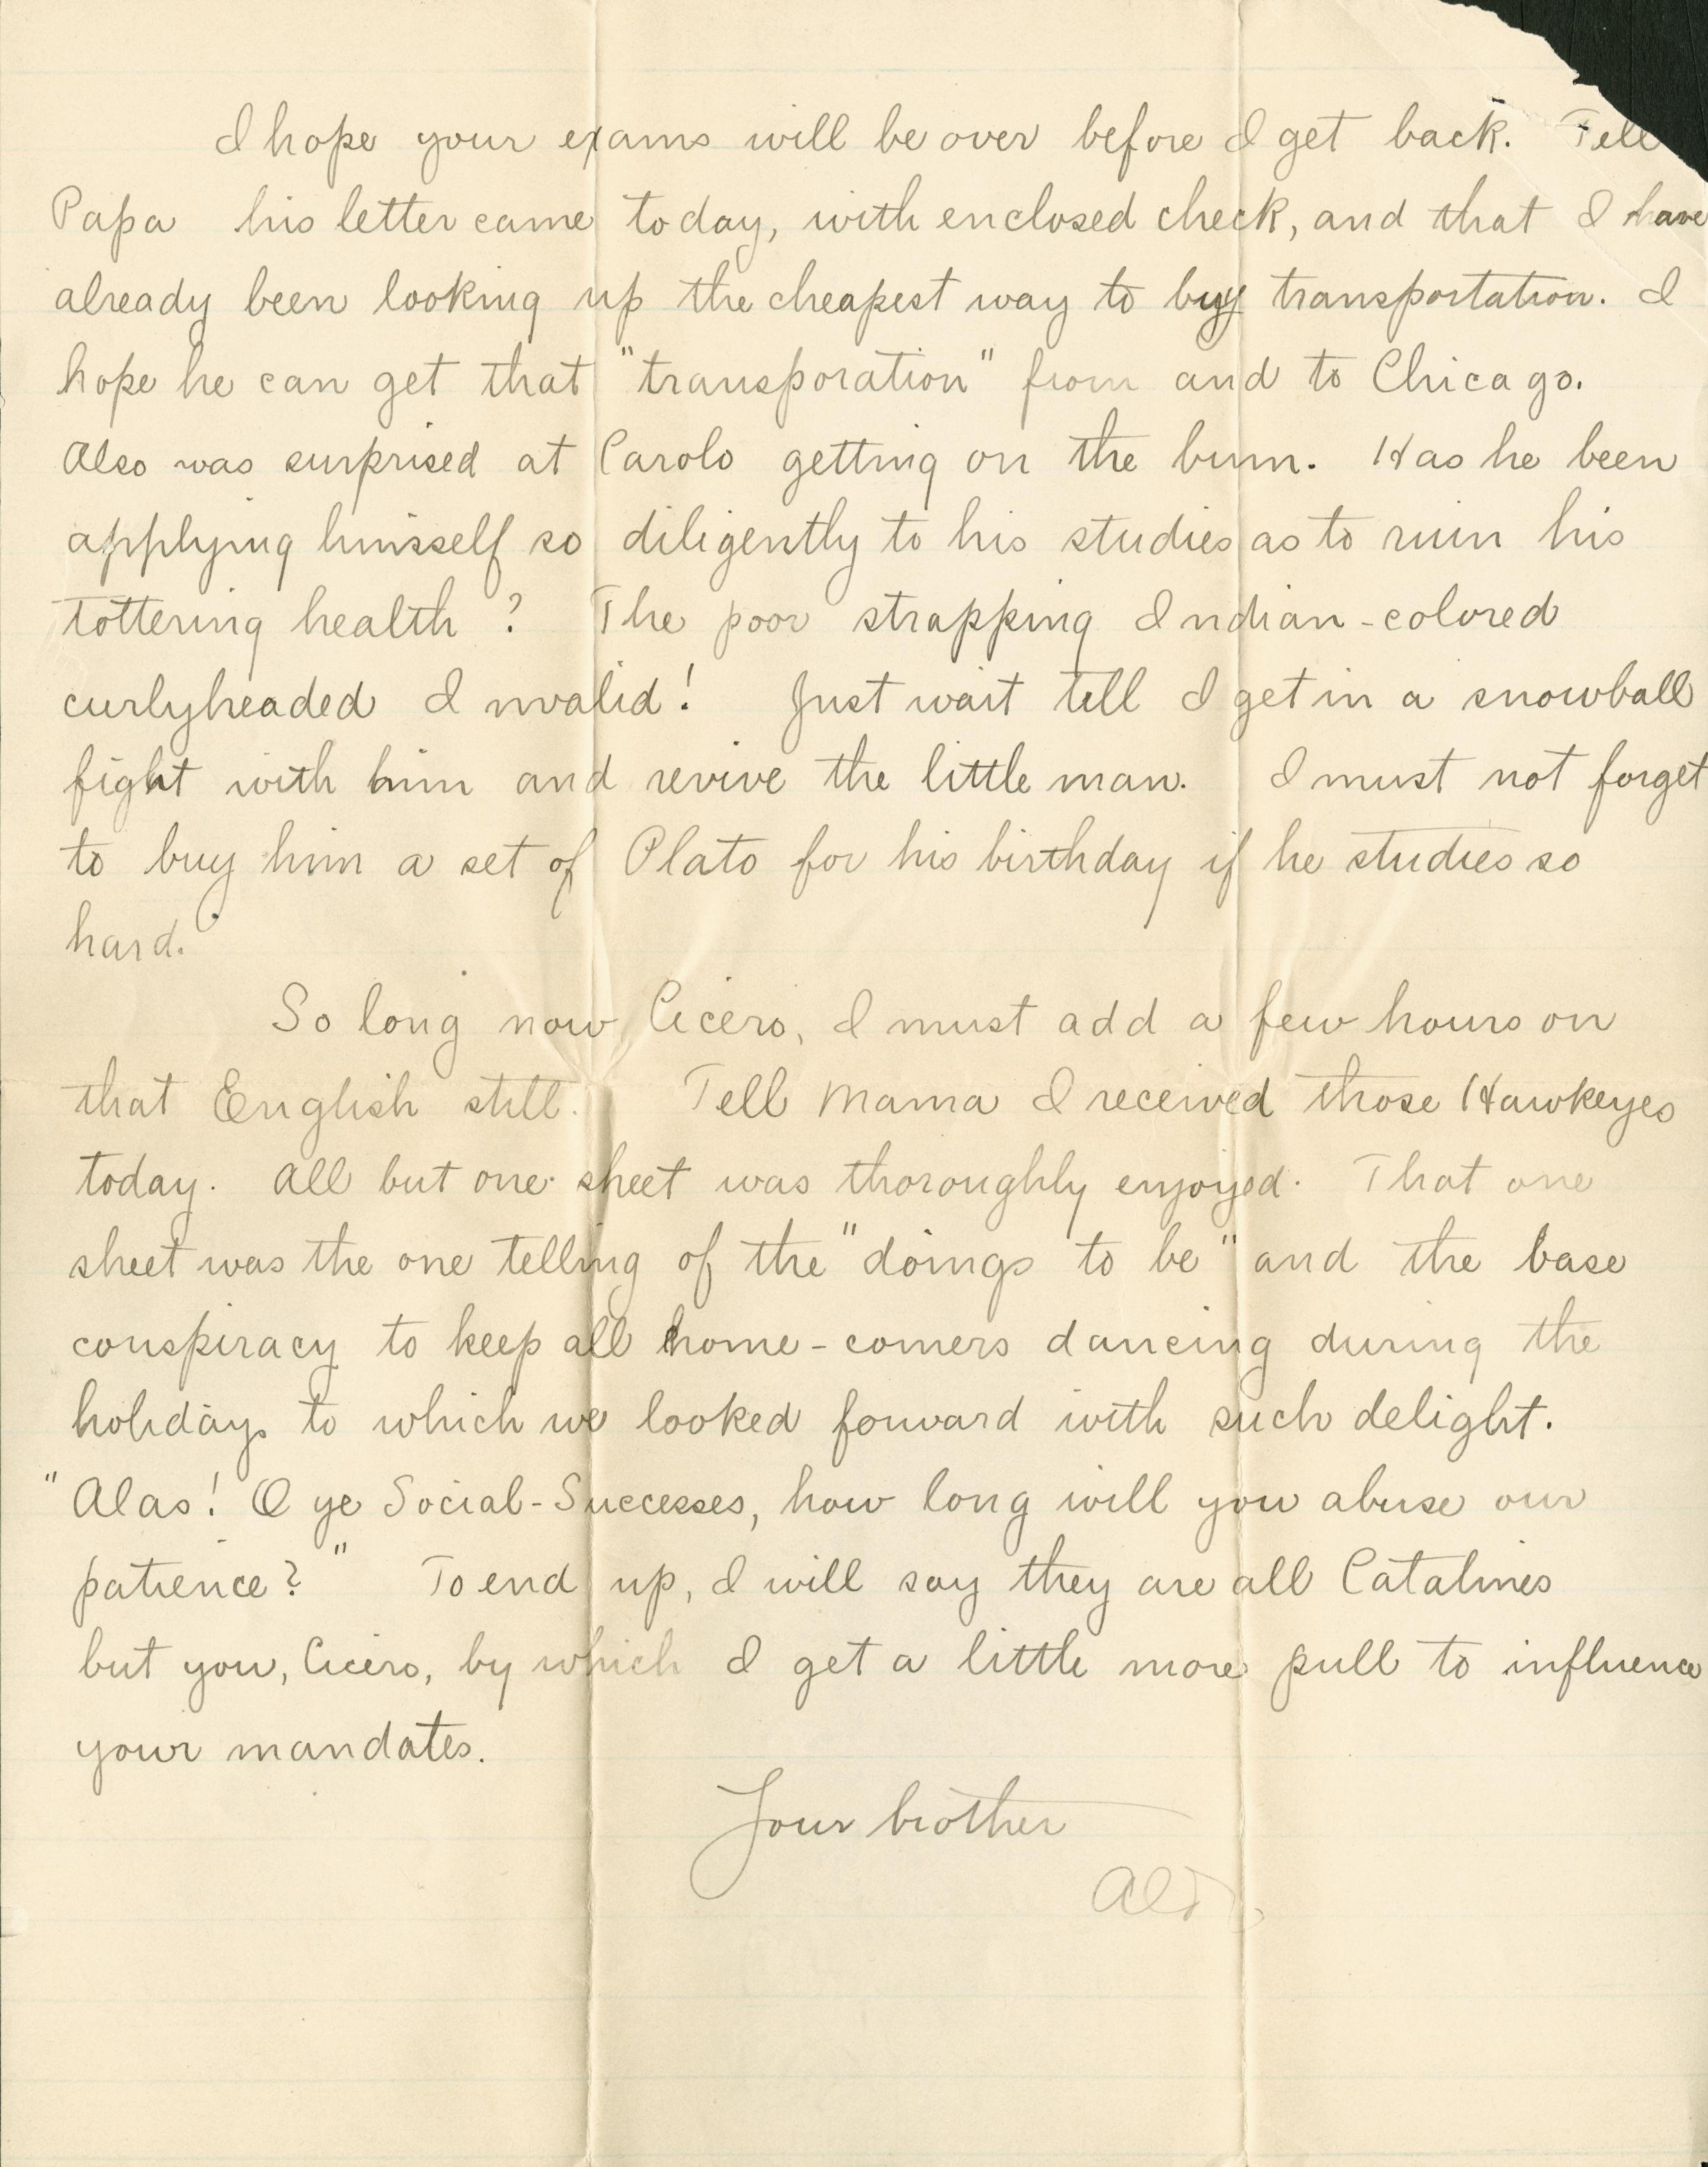 I hope your exams will be over before I get back. Tell
Papa his letter came today, with enclosed check, and that I have
already been looking up the cheapest way to buy transportation. I
hope he can get that "transporation" from and to Chicago.
Also was surprised at Carolo getting on the bum. Has he been
applying himsself so diligently to his studies as to ruin his
tottering health? The poor strapping Indian-colored
curlyheaded Invalid! Just wait till I get in a snowball
fight with him and revive the little man. I must not forget
to buy him a set of Plato for his birthday if he studies so
hard.
So long now Cicero, I must add a few hours on
that English still. Tell Mama I received those Hawkeyes
today. All but one sheet was thoroughly enjoyed. That one
sheet was the one telling of the "doings to be" and the base
conspiracy to keep all home-comers dancing during the
holidays to which we looked forward with such delight.
"Alas! O ye Social-Successes, how long will you abuse our
patience?" To end up, I will say they are all Catalines
but you, Cicero, by which I get a little more pull to influence
your mandates.
Your brother